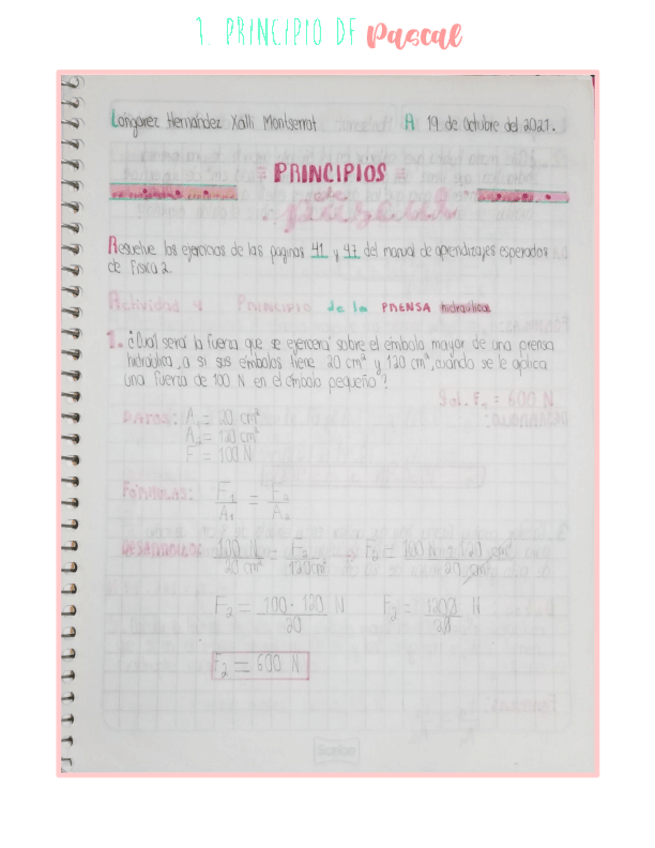 1. PRINCIPIO DE Pascal
Longarez Hernández Xalli Montserrat A 19 de Octubre del 2021.
PRINCIPIOS
de
Pascal
Resuelve los ejercicios de las paginas 41 y 47 del manual de aprendizajes esperados
de Fisica 2.
Actividad 4 PRINCIPIO de la PRENSA hidraúlica
1. ¿Cual será la fuerza que se ejercerá sobre el émbolo mayor de una prensa
hidráulica, a si sus émbolos tiene 20 cm² y 120 cm², cuando se le aplica
una fuerza de 100 N en el émbolo pequeño?
Sol. F₂ = 600 N
DATOS: A₁ = 20 cm²
A₂ = 120 cm²
F = 100 N
FÓRMULAS: F₁/A₁ = F₂/A₂
DESARROLLO: 100 N/20 cm² = F₂/120 cm² F₂ = 100 N · 120 cm²/20 cm²
F₂ = 100 · 120 N/20 F₂ = 1200 N/20
F₂ = 600 N
Scribe